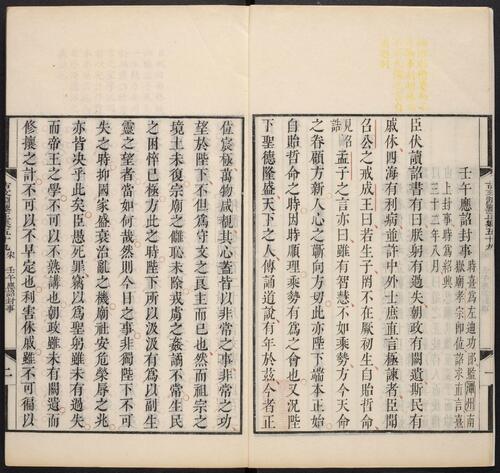 壬午應詔封事
時熹爲左迪功郎監潭州南
嶽廟孝宗卽位詔求直言熹
上封事時爲紹興
三十二年八月
臣伏讀詔書有曰朕躬有過失朝政有闕遺斯民有
戚休四海有利病並許中外士庶直言極諫者臣聞
召公之戒成王曰若生子罔不在厥初生自貽哲命
見召
誥
孟子之言亦曰雖有智慧不如乘勢方今天命
之眷顧方新人心之蘄向方切此亦陛下端本正始
自貽哲命之時因時順理乘勢有爲之會也又況陛
下聖德隆盛天下之人傳誦道說有年於茲今者正
位宸極萬物咸覩其心蓋皆以非常之事非常之功
望於陛下不但爲守文之良主而已也然而祖宗之
境土未復宗廟之讎恥未除戎虜之姦譎不常生民
之困悴已極方此之時陛下所以汲汲有爲以副生
靈之望者當如何哉然則今日之事非獨陛下不可
失之時抑國家盛衰治亂之機廟社安危榮辱之兆
亦皆決乎此矣臣愚死罪竊以爲聖躬雖未有過失
而帝王之學不可以不熟講也朝政雖未有闕遺而
修攘之計不可以不早定也利害休戚雖不可徧以
壬午應詔封事